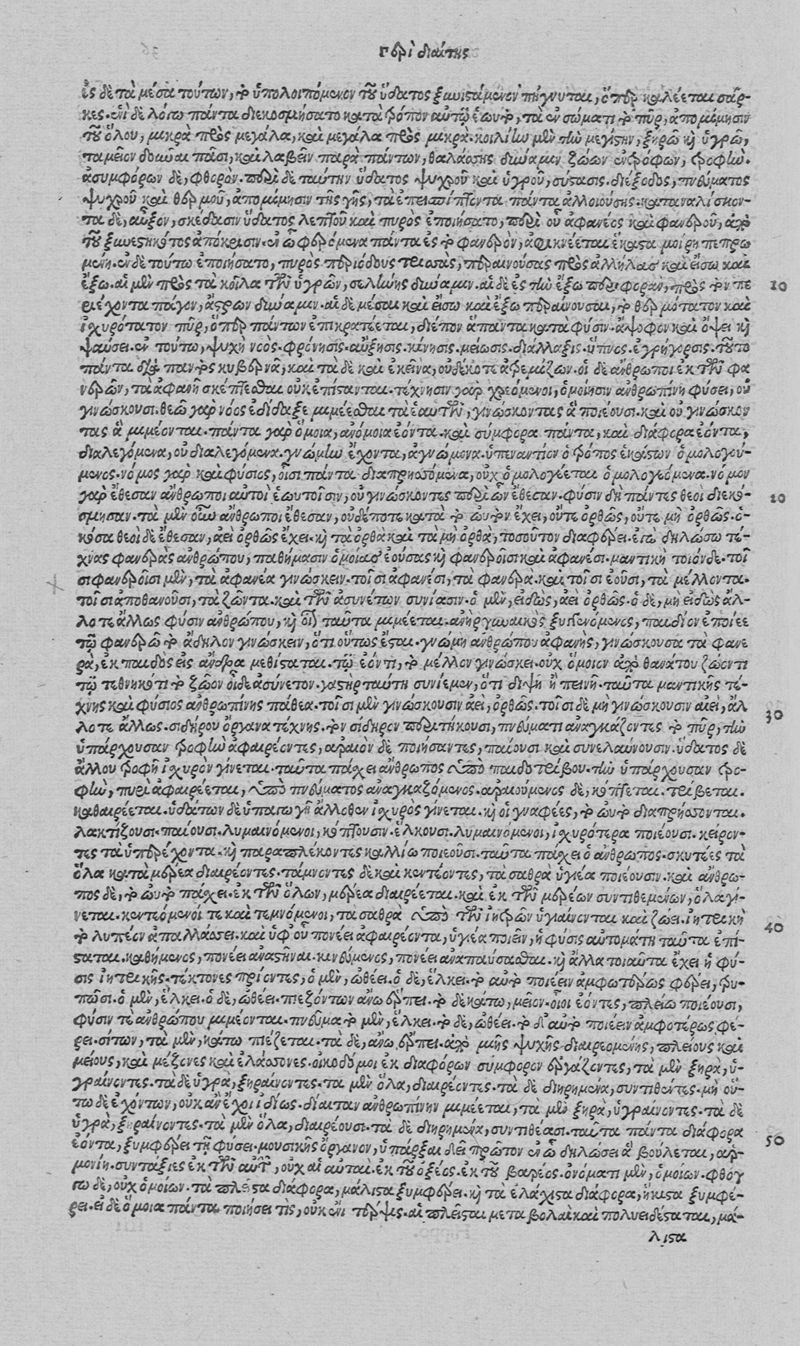 περὶ διαίτης
ἐς δὲ τὰ μέσα τούτων, τὸ ὑπολειπόμενον τοῦ ὕδατος ξυνιστάμενον πήγνυται, ὅπερ καλέεται σάρ-
κες. ἑνὶ δὲ λόγῳ πάντα διεκοσμήσατο κατὰ τρόπον αὐτῷ ἑωυτῷ, τὰ ἐν σώματι τὸ πῦρ, ἀπομίμησιν
τοῦ ὅλου, μικρὰ πρὸς μεγάλα, καὶ μεγάλα πρὸς μικρὰ. κοιλίην μὲν τὴν μεγίστην, ξηρῷ καὶ ὑγρῷ,
ταμεῖον δοῦναι πᾶσι, καὶ λαβεῖν παρὰ πάντων, θαλάσσης δύναμιν ζώων ἐντρόφων, τροφὴν.
ἀσυμφόρων δὲ, φθορὸν. περὶ δὲ ταύτην ὕδατος ψυχροῦ καὶ ὑγροῦ, σύστασις. διέξοδος, πνεύματος
ψυχροῦ καὶ θερμοῦ, ἀπομίμησιν τῆς γῆς, τὰ ἐπεισπίπτοντα πάντα ἀλλοιούσης. καταναλίσκον-
τα δὲ, αὖξον, σκέδασιν ὕδατος λεπτοῦ καὶ πυρὸς ἐποιήσατο, περὶ οὗ ἀφανέος καὶ φανεροῦ, ἀπὸ
τοῦ ξυνεστηκότος ἀπόκρισιν. ἐν ᾧ φερόμενα πάντα ἐς τὸ φανερὸν, ἀφικνέεται ἕκαστα μοίρῃ πεπρω
μένῃ. ἐν δὲ τούτῳ ἐποιήσατο, πυρὸς περιόδους τρισσὰς, περαινούσας πρὸς ἀλλήλας καὶ εἴσω καὶ
ἔξω. αἱ μὲν πρὸς τὰ κοῖλα τῶν ὑγρῶν, σελήνης δύναμιν. αἱ δὲ ἐς τὴν ἔξω περιφορὰν, πρὸς τὸν πε 10
ριέχοντα πάγον, ἄστρων δύναμιν. αἱ δὲ μέσαι καὶ εἴσω καὶ ἔξω περαίνουσαι, τὸ θερμότατον καὶ
ἰσχυρότατον πῦρ, ὅπερ πάντων ἐπικρατέεται, διέπον ἅπαντα κατὰ φύσιν. ἄψοφον καὶ ὄψει καὶ
ψαύσει. ἐν τούτῳ, ψυχὴ νόος. φρόνησις. αὔξησις. κίνησις. μείωσις. διάλλαξις. ὕπνος. ἐγρήγορσις. τοῦτο
πάντα διὰ παντὸς κυβερνᾷ, καὶ τάδε καὶ ἐκεῖνα, οὐδέκοτε ἀτρεμίζων. οἱ δὲ ἄνθρωποι ἐκ τῶν φα
νερῶν, τὰ ἀφανῆ σκέπτεσθαι οὐκ ἐπίστανται. τέχνῃσιν γὰρ χρεόμενοι, ὁμοίῃσιν ἀνθρωπίνῃ φύσει, οὐ
γινώσκουσι. θεῶν γὰρ νόος ἐδίδαξε μιμέεσθαι τὰ ἑαυτῶν, γινώσκοντας ἃ ποιέουσι. καὶ οὐ γινώσκον
τας ἃ μιμέονται. πάντα γὰρ ὅμοια, ἀνόμοια ἐόντα. καὶ σύμφορα πάντα, καὶ διάφορα ἐόντα,
διαλεγόμενα, οὐ διαλεγόμενα. γνώμην ἔχοντα, ἀγνώμονα. ὑπεναντίος ὁ τρόπος ἑκάστων ὁμολογεύ-
μενος. νόμος γὰρ καὶ φύσις, οἷσι πάντα διαπρησόμεθα, οὐχ ὁμολογέεται ὁμολογεόμενα. νόμον
γὰρ ἔθεσαν ἄνθρωποι αὐτοὶ ἑωυτοῖσιν, οὐ γινώσκοντες περὶ ὧν ἔθεσαν. φύσιν δὴ πάντες θεοὶ διεκό- 20
σμησαν. τὰ μὲν οὖν ἄνθρωποι ἔθεσαν, οὐδέποτε κατὰ τὸ ωὐτὸν ἔχει, οὔτε ὀρθῶς, οὔτε μὴ ὀρθῶς. ὁ-
κόσα θεοὶ δὲ ἔθεσαν, ἀεὶ ὀρθῶς ἔχει. καὶ τὰ ὀρθὰ καὶ τὰ μὴ ὀρθὰ, τοσοῦτον διαφέρει. ἐγὼ δηλώσω τέ-
χνας φανερὰς ἀνθρώπου, παθήμασιν ὁμοίας ἐούσας καὶ φανεροῖσι καὶ ἀφανέσι. μαντικὴ τοιόνδε. τοῖ
σι φανεροῖσι μὲν, τὰ ἀφανέα γινώσκειν. τοῖσι ἀφανέσι, τὰ φανερὰ. καὶ τοῖσι ἐοῦσι, τὰ μέλλοντα.
τοῖσι ἀποθανοῦσι, τὰ ζῶντα. καὶ τῶν ἀσυνέτων συνίασιν. ὁ μὲν, εἰδὼς, ἀεὶ ὀρθῶς. ὁ δὲ, μὴ εἰδὼς ἄλ-
λοτε ἄλλως. φύσιν ἀνθρώπου, καὶ βίον ταῦτα μιμέεται. ἀνὴρ γυναικὸς ξυγγενόμενος, παιδίον ἐποίεε
τῷ φανερῷ τὸ ἄδηλον γινώσκειν, ὅτι οὕτως ἔσται. γνώμη ἀνθρώπου ἀφανὴς, γινώσκουσα τὰ φανε
ρὰ, ἐκ παιδὸς εἰς ἄνδρα μεθίσταται. τῷ ἐόντι, τὸ μέλλον γινώσκει. οὐχ ὅμοιον ἀπὸ θανάτου ζώοντι
τῷ τεθνηκότι τὸ ζῶον οἶδε ἀσύνετον. γαστὴρ ταύτῃ συνίεμεν, ὅτι διψῇ ἢ πεινῇ. ταῦτα μαντικῆς τέ-
χνης καὶ φύσιος ἀνθρωπίνης πάθεα. τοῖσι μὲν γινώσκουσιν ἀεὶ, ὀρθῶς. τοῖσι δὲ μὴ γινώσκουσιν αἰεὶ, ἄλ 30
λοτε ἄλλως. σιδήρου ὄργανα τέχνης. τὸν σίδηρον περιτήκουσι, πνεύματι ἀναγκάζοντες τὸ πῦρ, τὴν
ὑπάρχουσαν τροφὴν ἀφαιρέοντες, ἀραιὸν δὲ ποιήσαντες, παίουσι καὶ συνελαύνουσιν. ὕδατος δὲ
ἄλλου τροφῇ ἰσχυρὸν γίνεται. ταῦτα πάσχει ἄνθρωπος ὑπὸ παιδοτρίβου. τὴν ὑπάρχουσαν τρο-
φὴν, πυρὶ ἀφαιρέεται, ὑπὸ πνεύματος ἀναγκαζόμενος. ἀραιούμενος δὲ, κόπτεται. τρίβεται.
καθαιρέεται. ὑδάτων δὲ ὑπαγωγῇ ἄλλοθεν ἰσχυρὸς γίνεται. καὶ οἱ γναφέες, τὸ ωὐτὸ διαπρήσσονται.
λακτίζουσι. παίουσι. λυμαινόμενοι, κόπτουσιν. ἕλκουσι. λυμαινόμενοι, ἰσχυρότερα ποιέουσι. κείρον-
τες τὰ ὑπερέχοντα. καὶ παραπλέκοντες καλλίω ποιεῦσι. ταῦτα πάσχει ὁ ἄνθρωπος. σκυτέες τὰ
ὅλα κατὰ μέρεα διαιρέοντες. τάμνοντες δὲ καὶ κεντέοντες, τὰ σαθρὰ ὑγιέα ποιέουσιν. καὶ ἄνθρω-
πος δὲ, τὸ ωὐτὸ πάσχει. ἐκ τῶν ὅλων, μέρεα διαιρέεται. καὶ ἐκ τῶν μερέων συντιθεμένων, ὅλα γί-
νεται. κεντεόμενοί τε καὶ τεμνόμενοι, τὰ σαθρὰ ὑπὸ τῶν ἰητρῶν ὑγιαίνονται καὶ ζῶσι. ἰητρικὴ 40
τὸ λυπέον ἀπαλλάσσει. καὶ ὑφ' οὗ πονέει ἀφαιρέοντα, ὑγιέα ποιεῖν, ἡ φύσις αὐτομάτη ταῦτα ἐπί-
σταται. καθήμενος, πονέει ἀναστῆναι. κινεύμενος, πονέει ἀναπαύσασθαι. καὶ ἄλλα τοιαῦτα ἔχει ἡ φύ-
σις ἰητρικῆς. τέκτονες πρίοντες, ὁ μὲν, ὠθέει. ὁ δὲ, ἕλκει. τὸ αὐτὸ ποιέειν ἀμφοτέρως φέρει, τρυ-
πῶσι. ὁ μὲν, ἕλκει. ὁ δὲ, ὠθέει. πιεζόντων ἄνω ἕρπει. τὸ δὲ κάτω, μεῖον. οἷοι ἐόντες, πλείω ποιέουσι,
φύσιν τε ἀνθρώπου μιμέονται. πνεῦμα τὸ μὲν, ἕλκει. τὸ δὲ, ὠθέει. τὸ δ' αὐτὸ ποιέειν ἀμφοτέρως φέ-
ρει. σίτων, τὰ μὲν, κάτω πιέζεται. τὰ δὲ, ἄνω ἕρπει. ἀπὸ μιῆς ψυχῆς διαιρεομένης, πλείους καὶ
μείους, καὶ μέζονες καὶ ἐλάσσονες. οἰκοδόμοι ἐκ διαφόρων σύμφορον ἐργάζονται, τὰ μὲν ξηρὰ, ὑ-
γραίνοντες. τὰ δὲ ὑγρὰ, ξηραίνοντες. τὰ μὲν ὅλα, διαιρέοντες. τὰ δὲ διῃρημένα, συντιθέντες. μὴ οὕ-
τω δὲ ἐχόντων, οὐκ ἂν ἔχοι ἰδίως. δίαιταν ἀνθρωπίνην μιμέεται, τὰ μὲν ξηρὰ, ὑγραίνοντες. τὰ δὲ
ὑγρὰ, ξηραίνοντες. τὰ μὲν ὅλα, διαιρέουσι. τὰ δὲ διῃρημένα, συντιθέασι. ταῦτα πάντα διάφορα
ἐόντα, ξυμφέρει τῇ φύσει. μουσικῆς ὄργανον, ὑπάρξαι δεῖ πρῶτον ἐν ᾧ δηλώσει ἃ βούλεται, ἁρ- 50
μονίη. συντάξιες ἐκ τῶν αὐτῶν, οὐχ αἱ αὐταὶ. ἐκ τοῦ ὀξέος. ἐκ τοῦ βαρέος. ὀνόματι μὲν, ὁμοίων. φθόγ
γῳ δὲ, οὐχ ὁμοίων. τὰ πλεῖστα διάφορα, μάλιστα ξυμφέρει. καὶ τὰ ἐλάχιστα διάφορα, ἥκιστα ξυμφέ-
ρει. εἰ δὲ ὅμοια πάντα ποιήσει τις, οὐκ ἔνι τέρψις. αἱ πλεῖσται μεταβολαὶ καὶ πολυειδέσταται, μά-
λιστα